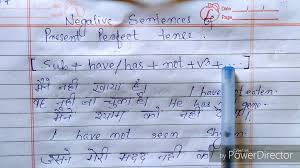 Negative Sentences of
Present Perfect tense.
[Sub + have/has + not + v3 +
मैंने नहीं खाया है। I have not eaten.
वह नहीं जा चुका है। He has gone.
मैंने श्याम को नहीं
I have not seen
उसने मेरी मदद नहीं की
by PowerDirector